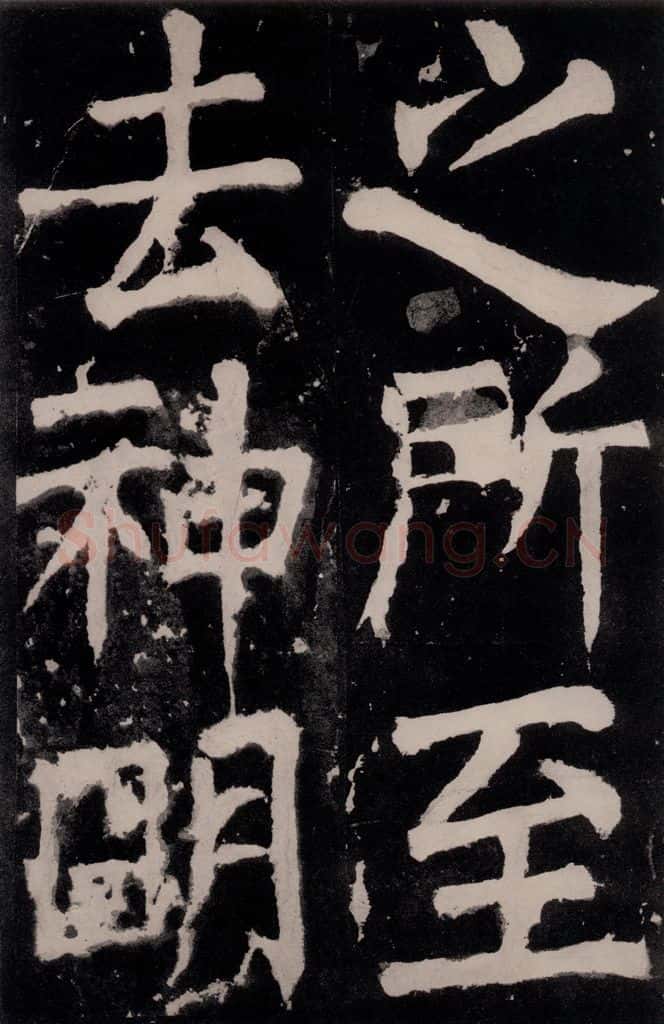 之所至
去神明
Shufawang.CN